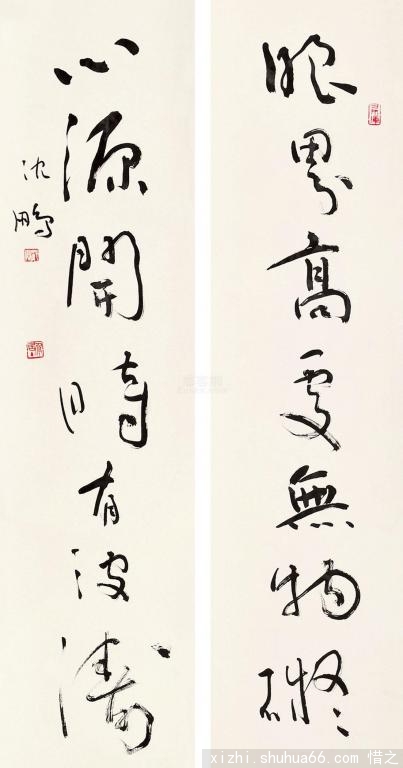 眼界高處無物礙
心源開時有波濤
沈鵬
xizhi.shuhua66.com 惜之